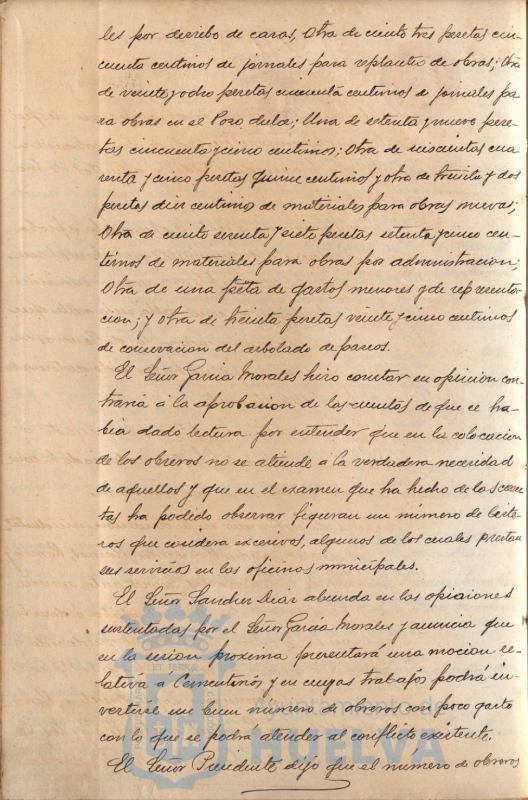 les por derribo de casas, Otra de ciento tres pesetas cin-
cuenta centimos de jornales para replanteo de obras; Otra
de veinte y ocho pesetas cincuenta centimos de jornales pa
ra obras en el Pozo dulce; Una de setenta y nueve pese-
tas cincuenta y cinco centimos; Otra de seiscientas cua
renta y cinco pesetas quince centimos y otra de treinta y dos
pesetas diez centimos de materiales para obras nuevas;
Otra de ciento sesenta y siete pesetas setenta y cinco cen-
timos de materiales para obras por administracion;
Otra de una peseta de gastos menores y de representa-
cion; y otra de treinta pesetas veinte y cinco centimos
de conservacion del arbolado de paseos.
El Señor Garcia Morales hizo constar su opinion con
traria á la aprobacion de las cuentas de que se ha-
bia dado lectura por entender que en la colocacion
de los obreros no se atiende á la verdadera necesidad
de aquellos y que en el examen que ha hecho de las cuen
tas ha podido observar figuran un número de
que cosidera excesivos, algunos de los cuales prestan
sus servicios en las oficinas municipales.
El Señor Sanchez Diaz abunda en las opiniones
sustentadas por el Señor Garcia Morales y anuncia que
en la sesion proxima presentará una mocion re-
lativa á Cementerios y en cuyos trabajos podrá in-
vertirse un buen número de obreros con poco gasto
con lo que se podrá atender al conflicto existente.
El Señor Presidente dijo que el número de obreros
HUELVA